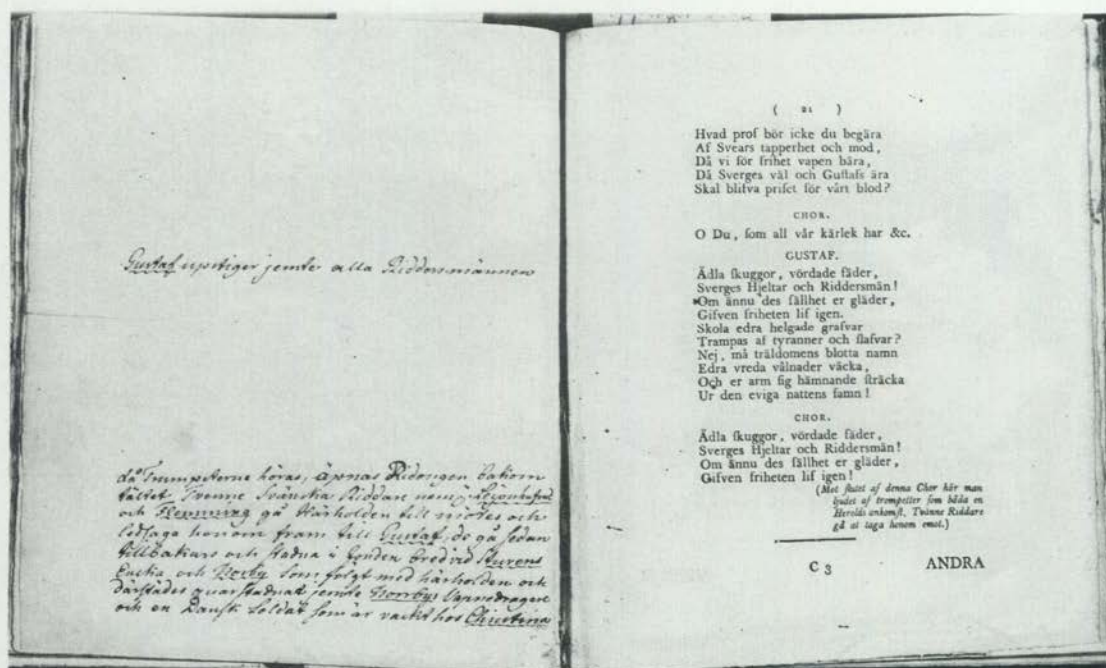 Gustaf upstiger jemte alla Riddersmännen
då Trumpeterne höras, öpnas Ridongen bakom
tältet Tvenne Svänska Riddare neml. Lejonhufvud
och Flemming gå Härholden till mötes och
ledsaga honom fram till Gustaf, de gå sedan
tillbakars och stadna i fonden bredvid Sturens
Enkia och Norby som folgt med härholden och
därstädes qvarstadnat jemte Norrbys Vapnedragare
och en Dansk Soldat som är vackt hos Christina
( 21 )
Hvad prof bör icke du begära
Af Svears tapperhet och mod,
Då vi för frihet vapen bära,
Då Sverges väl och Gustafs ära
Skal blifva priset för vårt blod?
CHOR.
O Du, som all vår kärlek har &c.
GUSTAF.
Ädla skuggor, vördade fäder,
Sverges Hjeltar och Riddersmän!
Om ännu des sällhet er gläder,
Gifven friheten lif igen.
Skola edra helgade grafvar
Trampas af tyranner och slafvar?
Nej, må träldomens blotta namn
Edra vreda vålnader väcka,
Och er arm sig hämnande sträcka
Ur den eviga nattens famn!
CHOR.
Ädla skuggor, vördade fäder,
Sverges Hjeltar och Riddersmän!
Om ännu des sällhet er gläder,
Gifven friheten lif igen!
(Mot slutet af denna Chor hör man
ljudet af trompetter som båda en
Herolds ankomst. Tvänne Riddare
gå at taga honom emot.)
C 3 ANDRA